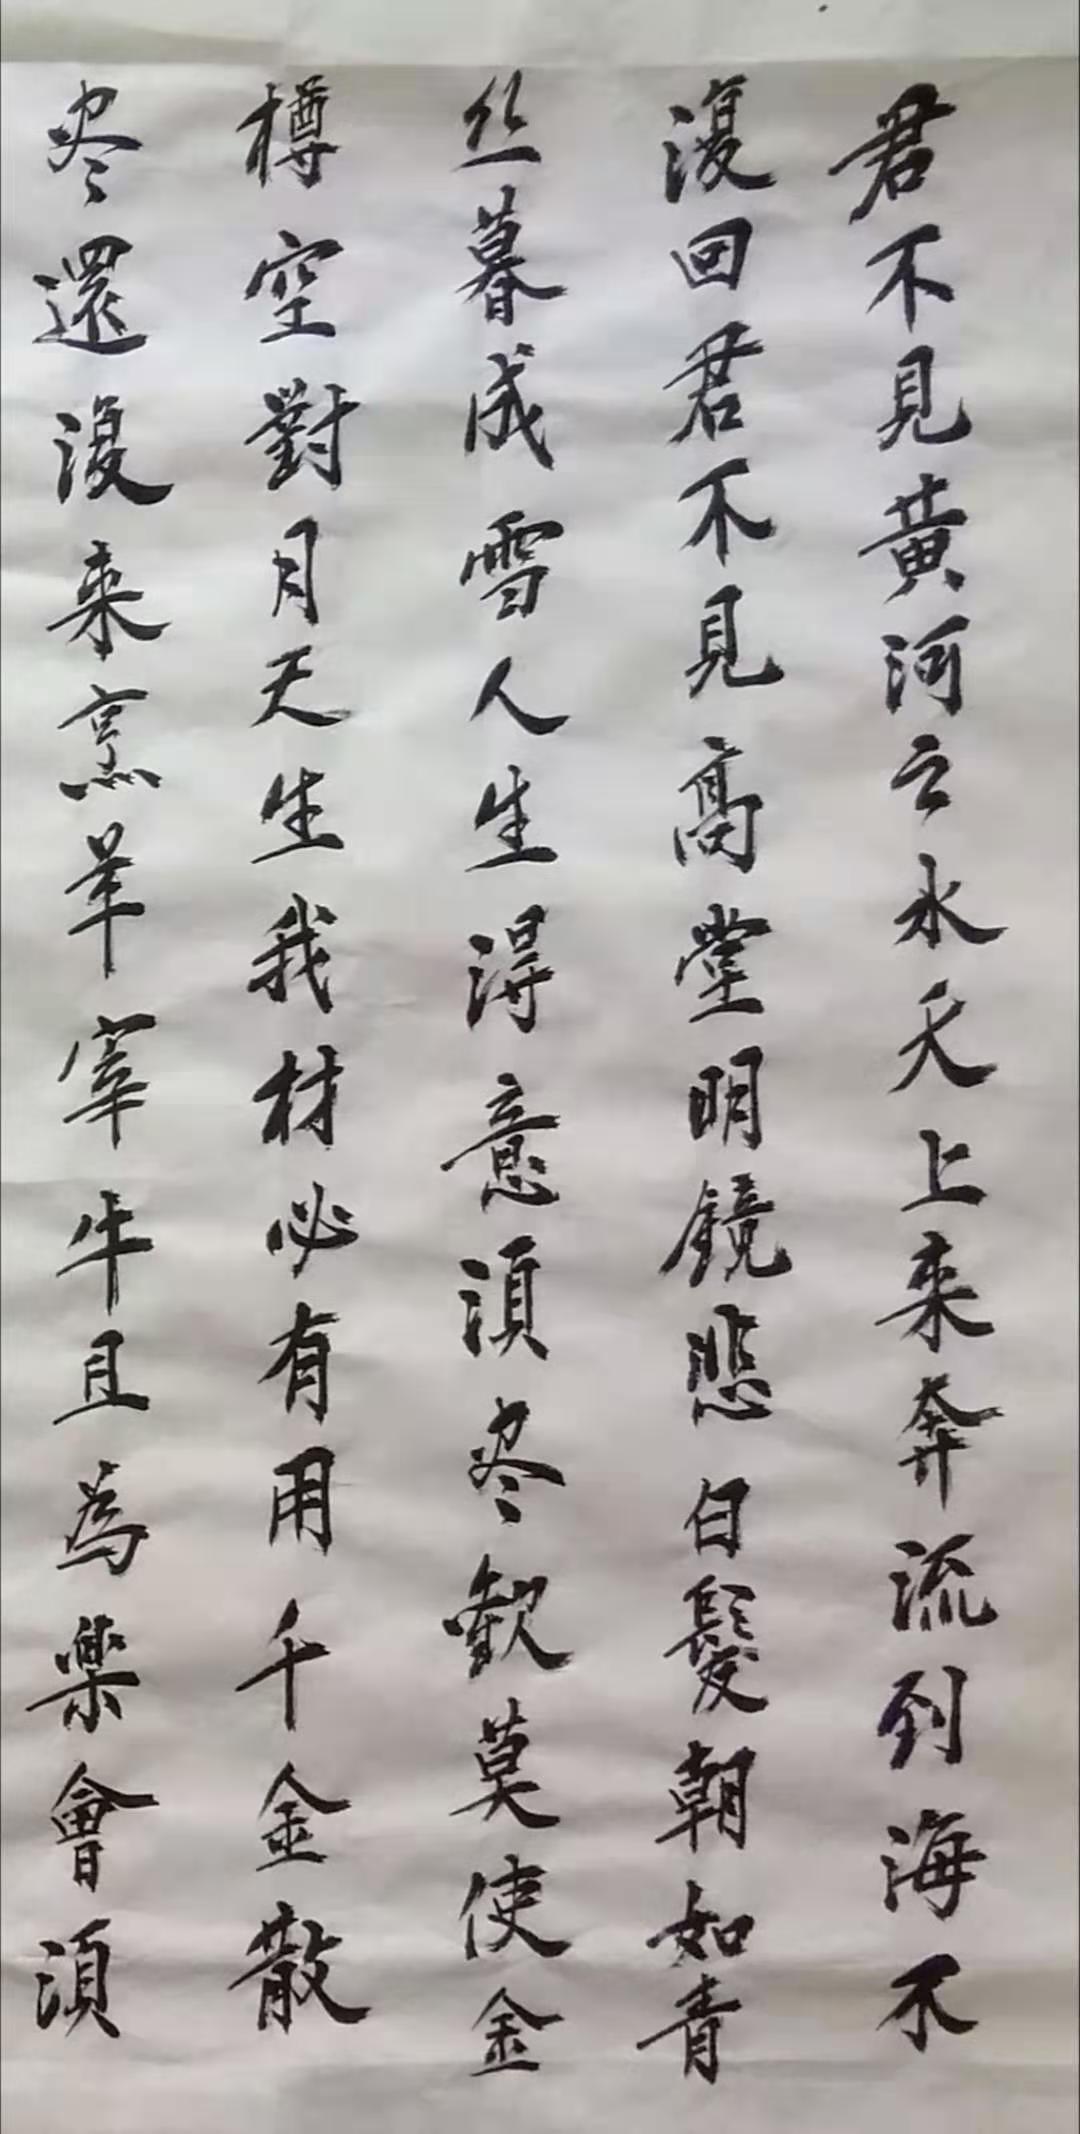 君不見黃河之水天上來奔流到海不
復回君不見高堂明鏡悲白髮朝如青
丝暮成雪人生得意須尽歡莫使金
樽空對月天生我材必有用千金散
尽還復来烹羊宰牛且為樂會須